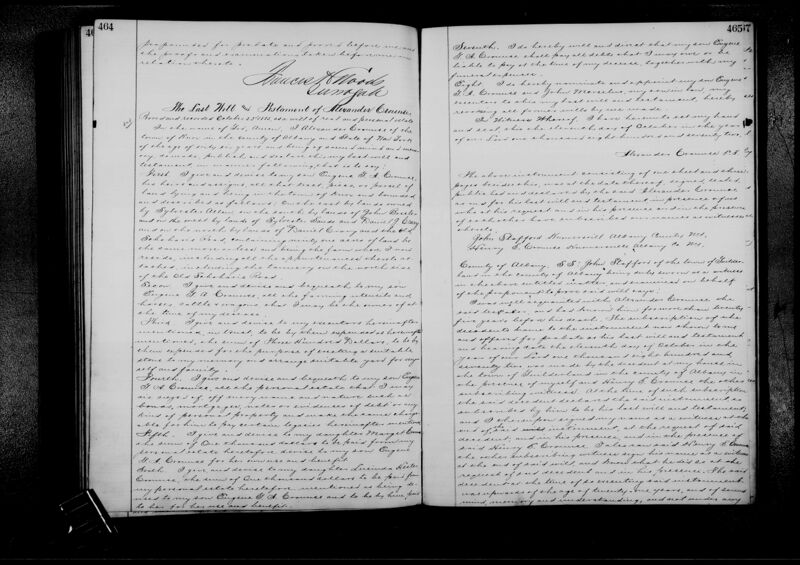 464
propounded for probate and proved before me and
the proofs and examinations taken before me in
relation thereto.
Surrogate
The Last Will and Testament of Alexander Crounse
In the name of God, Amen. I Alexander Crounse of the
town of in the County of Albany and State of New York
of the age of years and being of sound mind and mem-
ory, do make, publish and declare this my last will and
testament in manner following, that is to say:
First. I give and devise to my son Eugene F. A. Crounse,
his heirs and assigns, all that tract, piece, or parcel of
land lying and being in the town of and bounded
and described as follows: On the east by lands owned
by Sylvester Allen on the south by lands of John
and on the west by lands of Sylvester and Daniel
and on the north by lands of Daniel and the old
Schoharie Road, containing ninety one acres of land be
the same more or less, and being the farm where I now
reside, including all the appurtenances thereto at-
tached, including the tannery on the north side
of the Old Schoharie Road
Second. I give and devise and bequeath to my son
Eugene F. A. Crounse, all the farming utensils and
horses cattle wagons that I may be the owner of at
the time of my decease.
Third. I give and devise to my executors hereinafter
mentioned, in trust, to be by them expended
mentioned, the sum of Three Hundred Dollars, to be by
them expended for the purpose of erecting a suitable
stone to my memory and arrange suitable yard for my-
self and family.
Fourth. I give and devise and bequeath to my son Eugene
F. A. Crounse, all the personal estate that I may
die seized of, of every name and nature such as
bonds, mortgages, notes or evidences of debt or any
kind of personal property and make the same charge-
able for him to pay certain legacies hereinafter mentioned
Fifth. I give and devise to my daughter
the sum of One thousand dollars to be paid from my
personal estate heretofore devised to my son Eugene
F. A. Crounse for her own use and benefit.
Sixth. I give and devise to my daughter Lucinda
Crounse, the sum of One thousand dollars to be paid from
my personal estate heretofore mentioned as being de-
vised to my son Eugene F. A. Crounse and to be by him paid
to her for her use and benefit.
465
Seventh. I do hereby will and direct that my son Eugene
F. A. Crounse shall pay all debts that I may owe or be
liable to pay at the time of my decease, together with my
funeral expenses.
Eight. I do hereby nominate and appoint my son Eugene
F. A. Crounse and John my son in law my
executors to this my last will and testament, hereby
revoking all former wills by me made.
In Witness Whereof, I have hereunto set my hand
and seal this the eleventh day of October in the year
of our Lord one thousand eight hundred and seventy two.
Alexander Crounse L.S.
The above instrument consisting of one sheet and three
pages besides this, was at the date thereof, signed, sealed,
published and declared by the said Alexander Crounse,
as and for his last will and testament in presence of us
who at his request and in his presence and in the presence
of each other have subscribed our names as witnesses
thereto.
John Stafford Knowersville Albany County N.Y.
Henry E. Crounse Knowersville Albany Co N.Y.
County of Albany, S.S: John Stafford of the town of Guilder-
land in the county of Albany being duly sworn as a witness
in the above entitled matter and examined on behalf
of the proponent to prove said will says:
I was well acquainted with Alexander Crounse the
said testator, and had known him for more than twenty
five years before his death. The subscription of the
decedents name to the instrument now shown to me
and offered for probate as his last will and testament,
and bearing date the eleventh day of October in the
year of our Lord one thousand eight hundred and
seventy two was made by the decedent at my house in
the town of Guilderland in the county of Albany in
the presence of myself and Henry E. Crounse the other
subscribing witness. At the time of such subscription
the said decedent declared the said instrument so
subscribed by him to be his last will and testament,
and I thereupon signed my name as a witness at the
end of said instrument at the request of said
decedent, and in his presence, and in the presence of
said Henry E. Crounse. I also saw said Henry E. Crounse
the other subscribing witness sign his name as a witness
at the end of said will and know that he did so at the
request of said decedent and in his presence. The said
decedent at the time of so executing said instrument
was upwards of the age of twenty one years, and of sound
mind, memory and understanding, and not under any